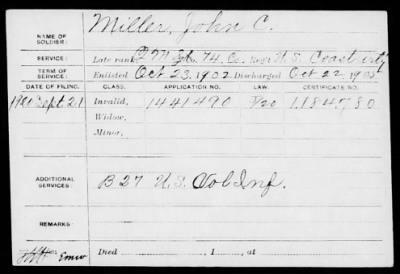 NAME OF SOLDIER: Miller, John C.
SERVICE: Late rank Regt U.S. Coast Arty
74, Co.
TERM OF SERVICE: Enlisted Oct 23, 1902 Discharged Oct 22, 1905
DATE OF FILING. CLASS. APPLICATION NO. LAW. CERTIFICATE NO.
Sept. 21 Invalid, 1441490
Widow,
Minor,
ADDITIONAL SERVICES: B 27 U.S. Vol Inf.
REMARKS:
Died , 1 , at